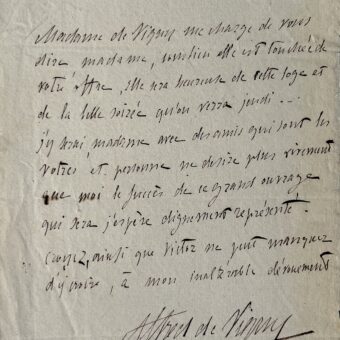 Madame de Vigny me charge de vous
dire madame, combien elle est touchée de
votre offre, Elle sera heureuse de cette loge et
de la belle soirée qu'on verra jeudi...
j'y serai, madame avec des amis qui sont les
votres et personne ne desire plus vivement
que moi le succès de ce grand ouvrage
qui sera j'espère dignement représenté.
Croyez, ainsi que Victor ne peut manquer
d'y croire, à mon inaltérable dévouement
Alfred de Vigny